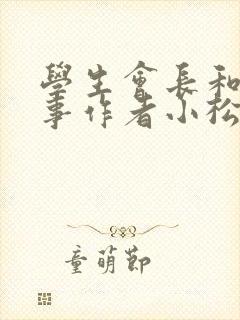 學生會長和
事作者小松
童萌節